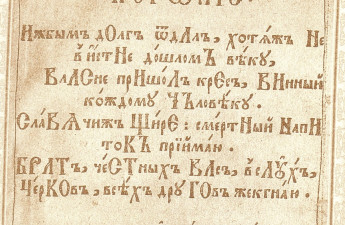 Ижбымъ долгъ ѿдалъ, хотяжъ не
в йстне дошломъ веку,
власне пришолъ кресъ, винный
кождому чъловеку.
Славячи щире: смертный напи
токъ прїймаю.
братъ, честныхъ влсъ, вслухъ,
церковъ, всехъ друговъ жекгнаю.